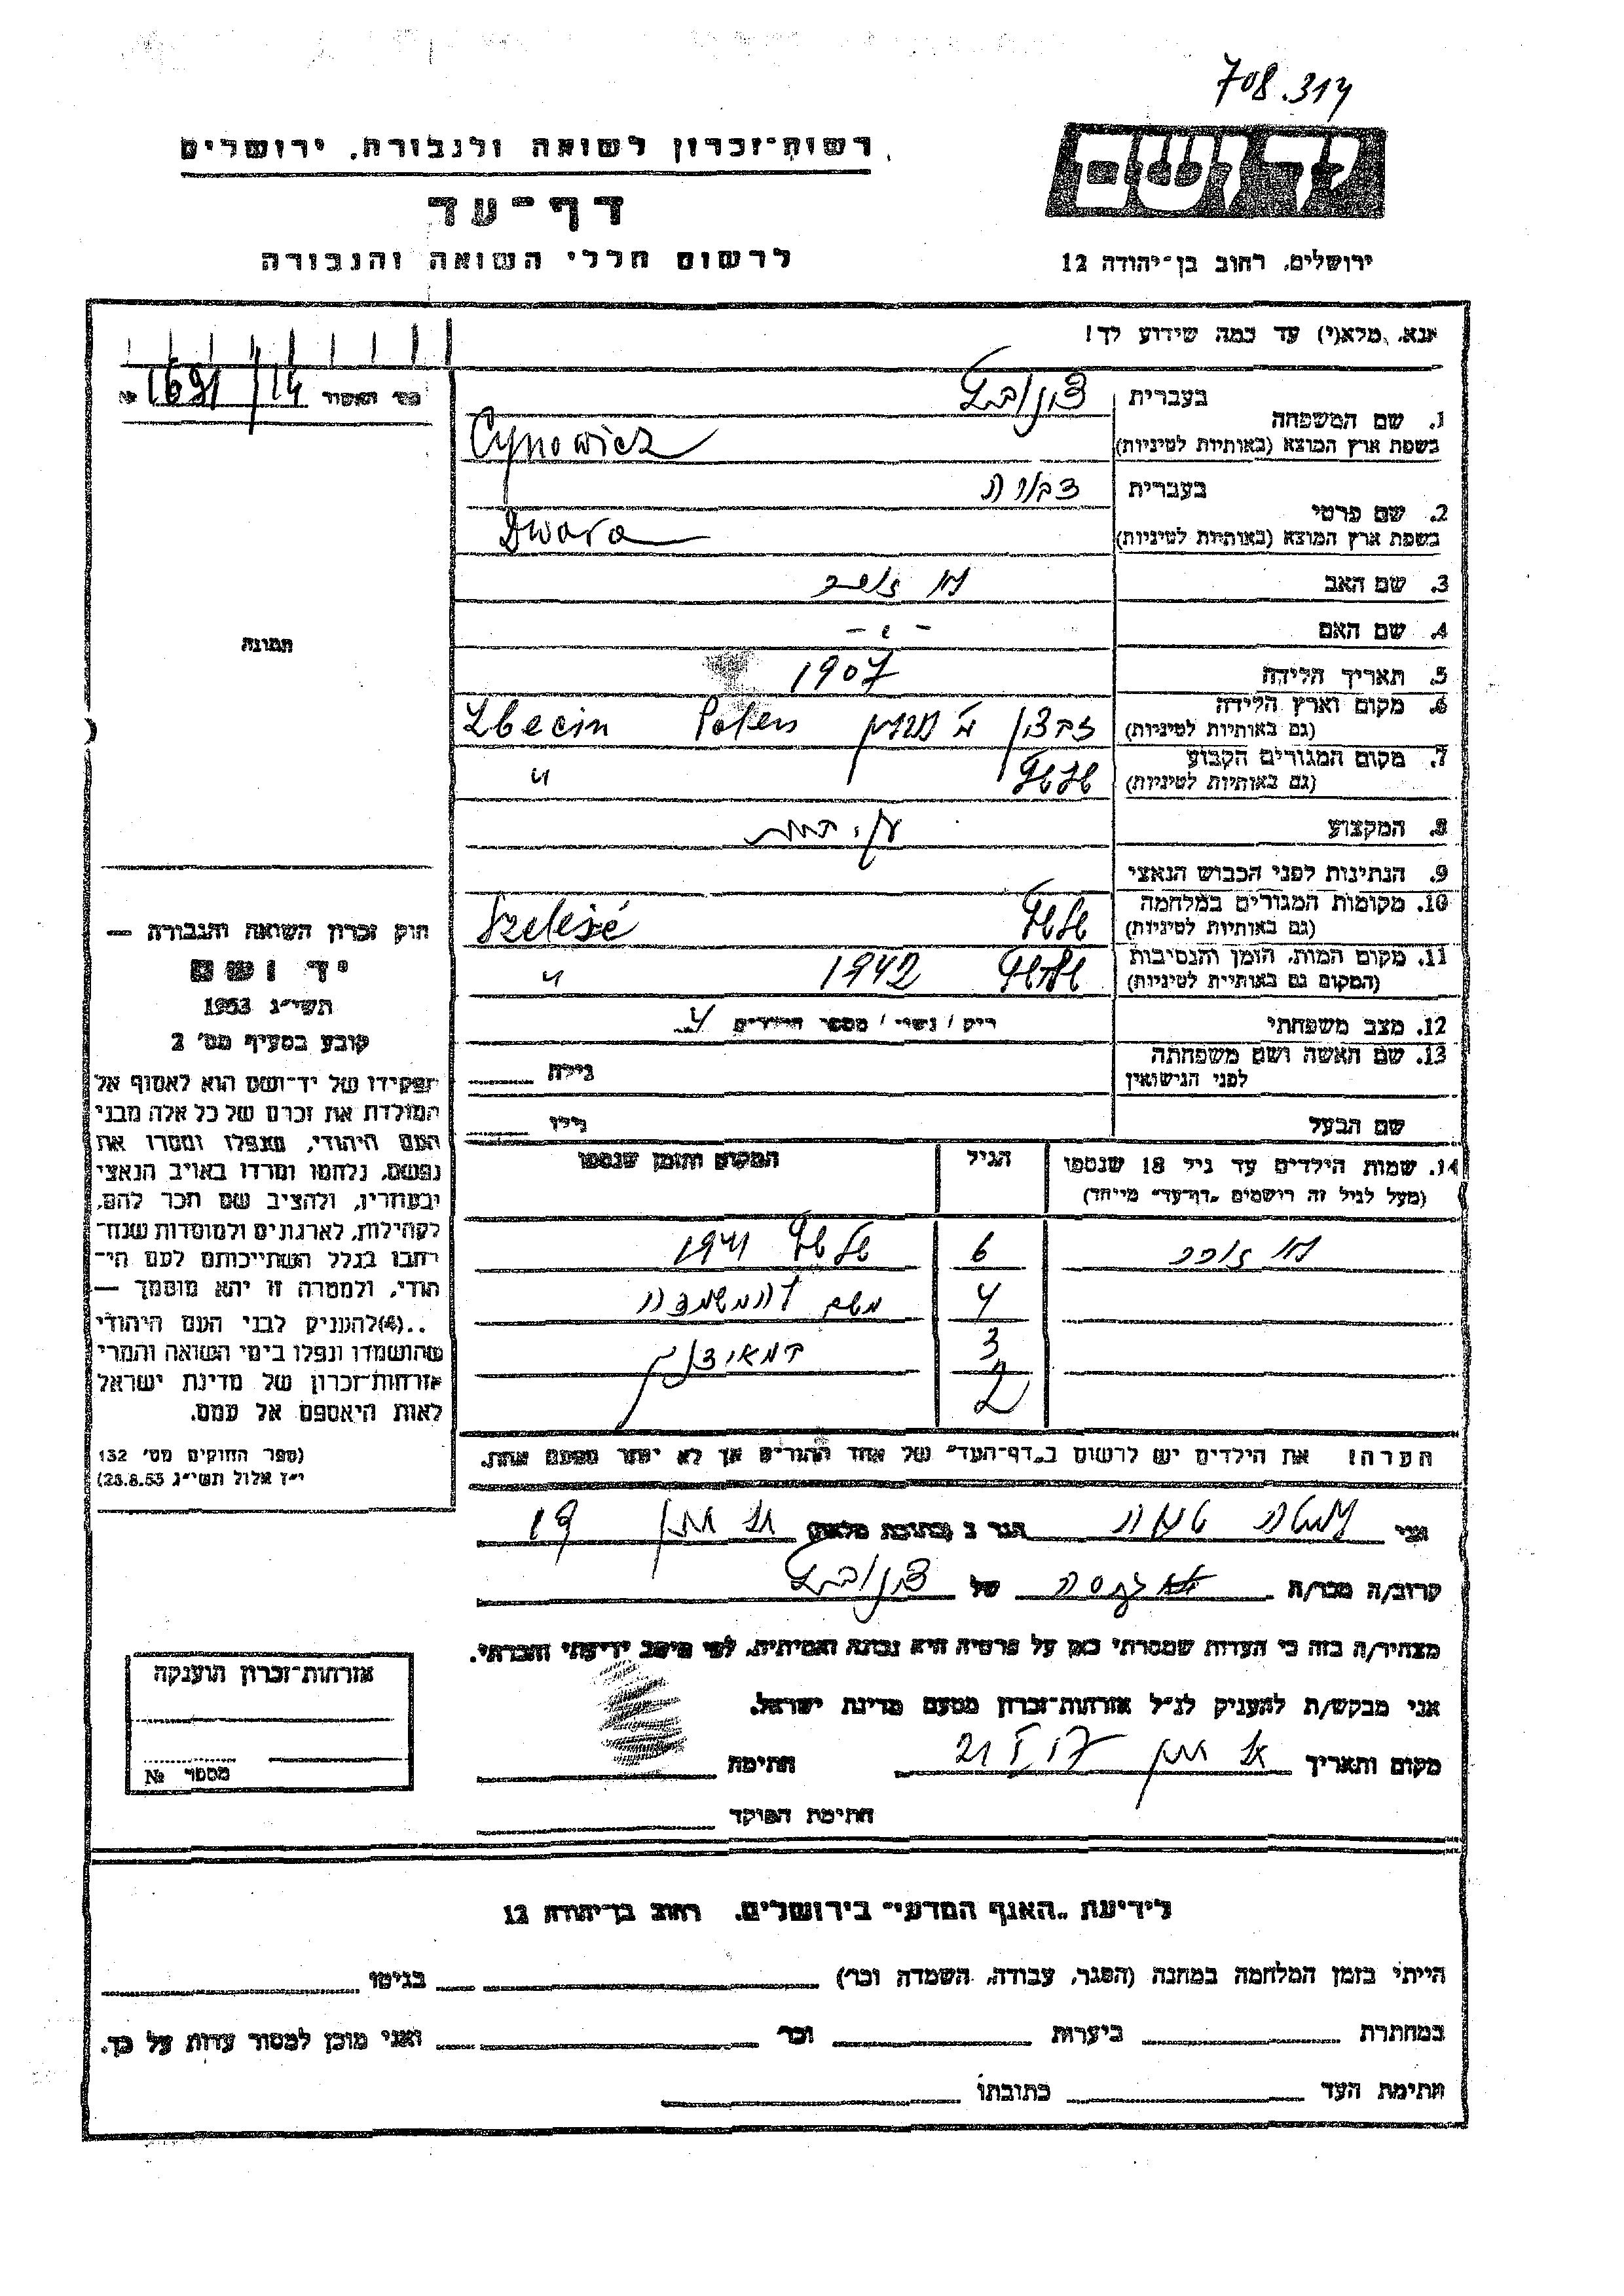 708.314
רשות־זכרון לשואה ולגבורה, ירושלים
דף־עד
לרשום חללי השואה והגבורה
ידושם
ירושלים, רחוב בן־יהודה 12
אנא, מלא(י) עד כמה שידוע לך!
מס׳ האשור 1691/14 №
תמונה
1. שם המשפחה
בעברית צינוביץ
בשפת ארץ המוצא (באותיות לטיניות) Cynowicz
2. שם פרטי
בעברית
בשפת ארץ המוצא (באותיות לטיניות) Dwora
3. שם האב לא זוכר
4. שם האם – " –
5. תאריך הלידה 1907
6. מקום וארץ הלידה
(גם באותיות לטיניות) Zbecin Polen
7. מקום המגורים הקבוע
(גם באותיות לטיניות) "
8. המקצוע
9. הנתינות לפני הכבוש הנאצי
10. מקומות המגורים במלחמה
(גם באותיות לטיניות) Szelisze
11. מקום המות, הזמן והנסיבות
(המקום גם באותיות לטיניות) 1942 "
12. מצב משפחתי
רוק / נשוי / מספר הילדים 4
13. שם האשה ושם משפחתה
לפני הנישואין גילה
שם הבעל גילו
14. שמות הילדים עד גיל 18 שנספו
(מעל לגיל זה רושמים „דף־עד” מיוחד)
הגיל
המקום והזמן שנספו
לא זוכר 6 1941
4
3
2
הערה! את הילדים יש לרשום ב„דף־העד” של אחד ההורים אך לא יותר מפעם אחת.
חוק זכרון השואה והגבורה —
יד ושם
תשי״ג 1953
קובע בסעיף מס׳ 2
תפקידו של יד־ושם הוא לאסוף אל
המולדת את זכרם של כל אלה מבני
העם היהודי, שנפלו ומסרו את
נפשם, נלחמו ומרדו באויב הנאצי
ובעוזריו, ולהציב שם וזכר להם,
לקהילות, לארגונים ולמוסדות שנח־
רבו בגלל השתייכותם לעם הי־
הודי, ולמטרה זו יהא מוסמך —
..(4)להעניק לבני העם היהודי
שהושמדו ונפלו בימי השואה והמרי
אזרחות־זכרון של מדינת ישראל
לאות היאספם אל עמם.
(ספר החוקים מס׳ 132
י״ז אלול תשי״ג 28.8.53)
אני הגר ב (כתובת מלאה) 19
קרוב/ה מכר/ה של צינוביץ
מצהיר/ה בזה כי העדות שמסרתי כאן על פרטיה היא נכונה ואמיתית, לפי מיטב ידיעתי והכרתי.
אני מבקש/ת להעניק לנ״ל אזרחות־זכרון מטעם מדינת ישראל.
מקום ותאריך חתימה
חתימת הפוקד
אזרחות־זכרון הוענקה
מספר №
לידיעת „האגף המדעי” בירושלים, רחוב בן־יהודה 12
הייתי בזמן המלחמה במחנה (הסגר, עבודה, השמדה וכו׳) בגיטו
במחתרת ביערות וכו׳ ואני מוכן למסור עדות על כך.
חתימת העד כתובתו